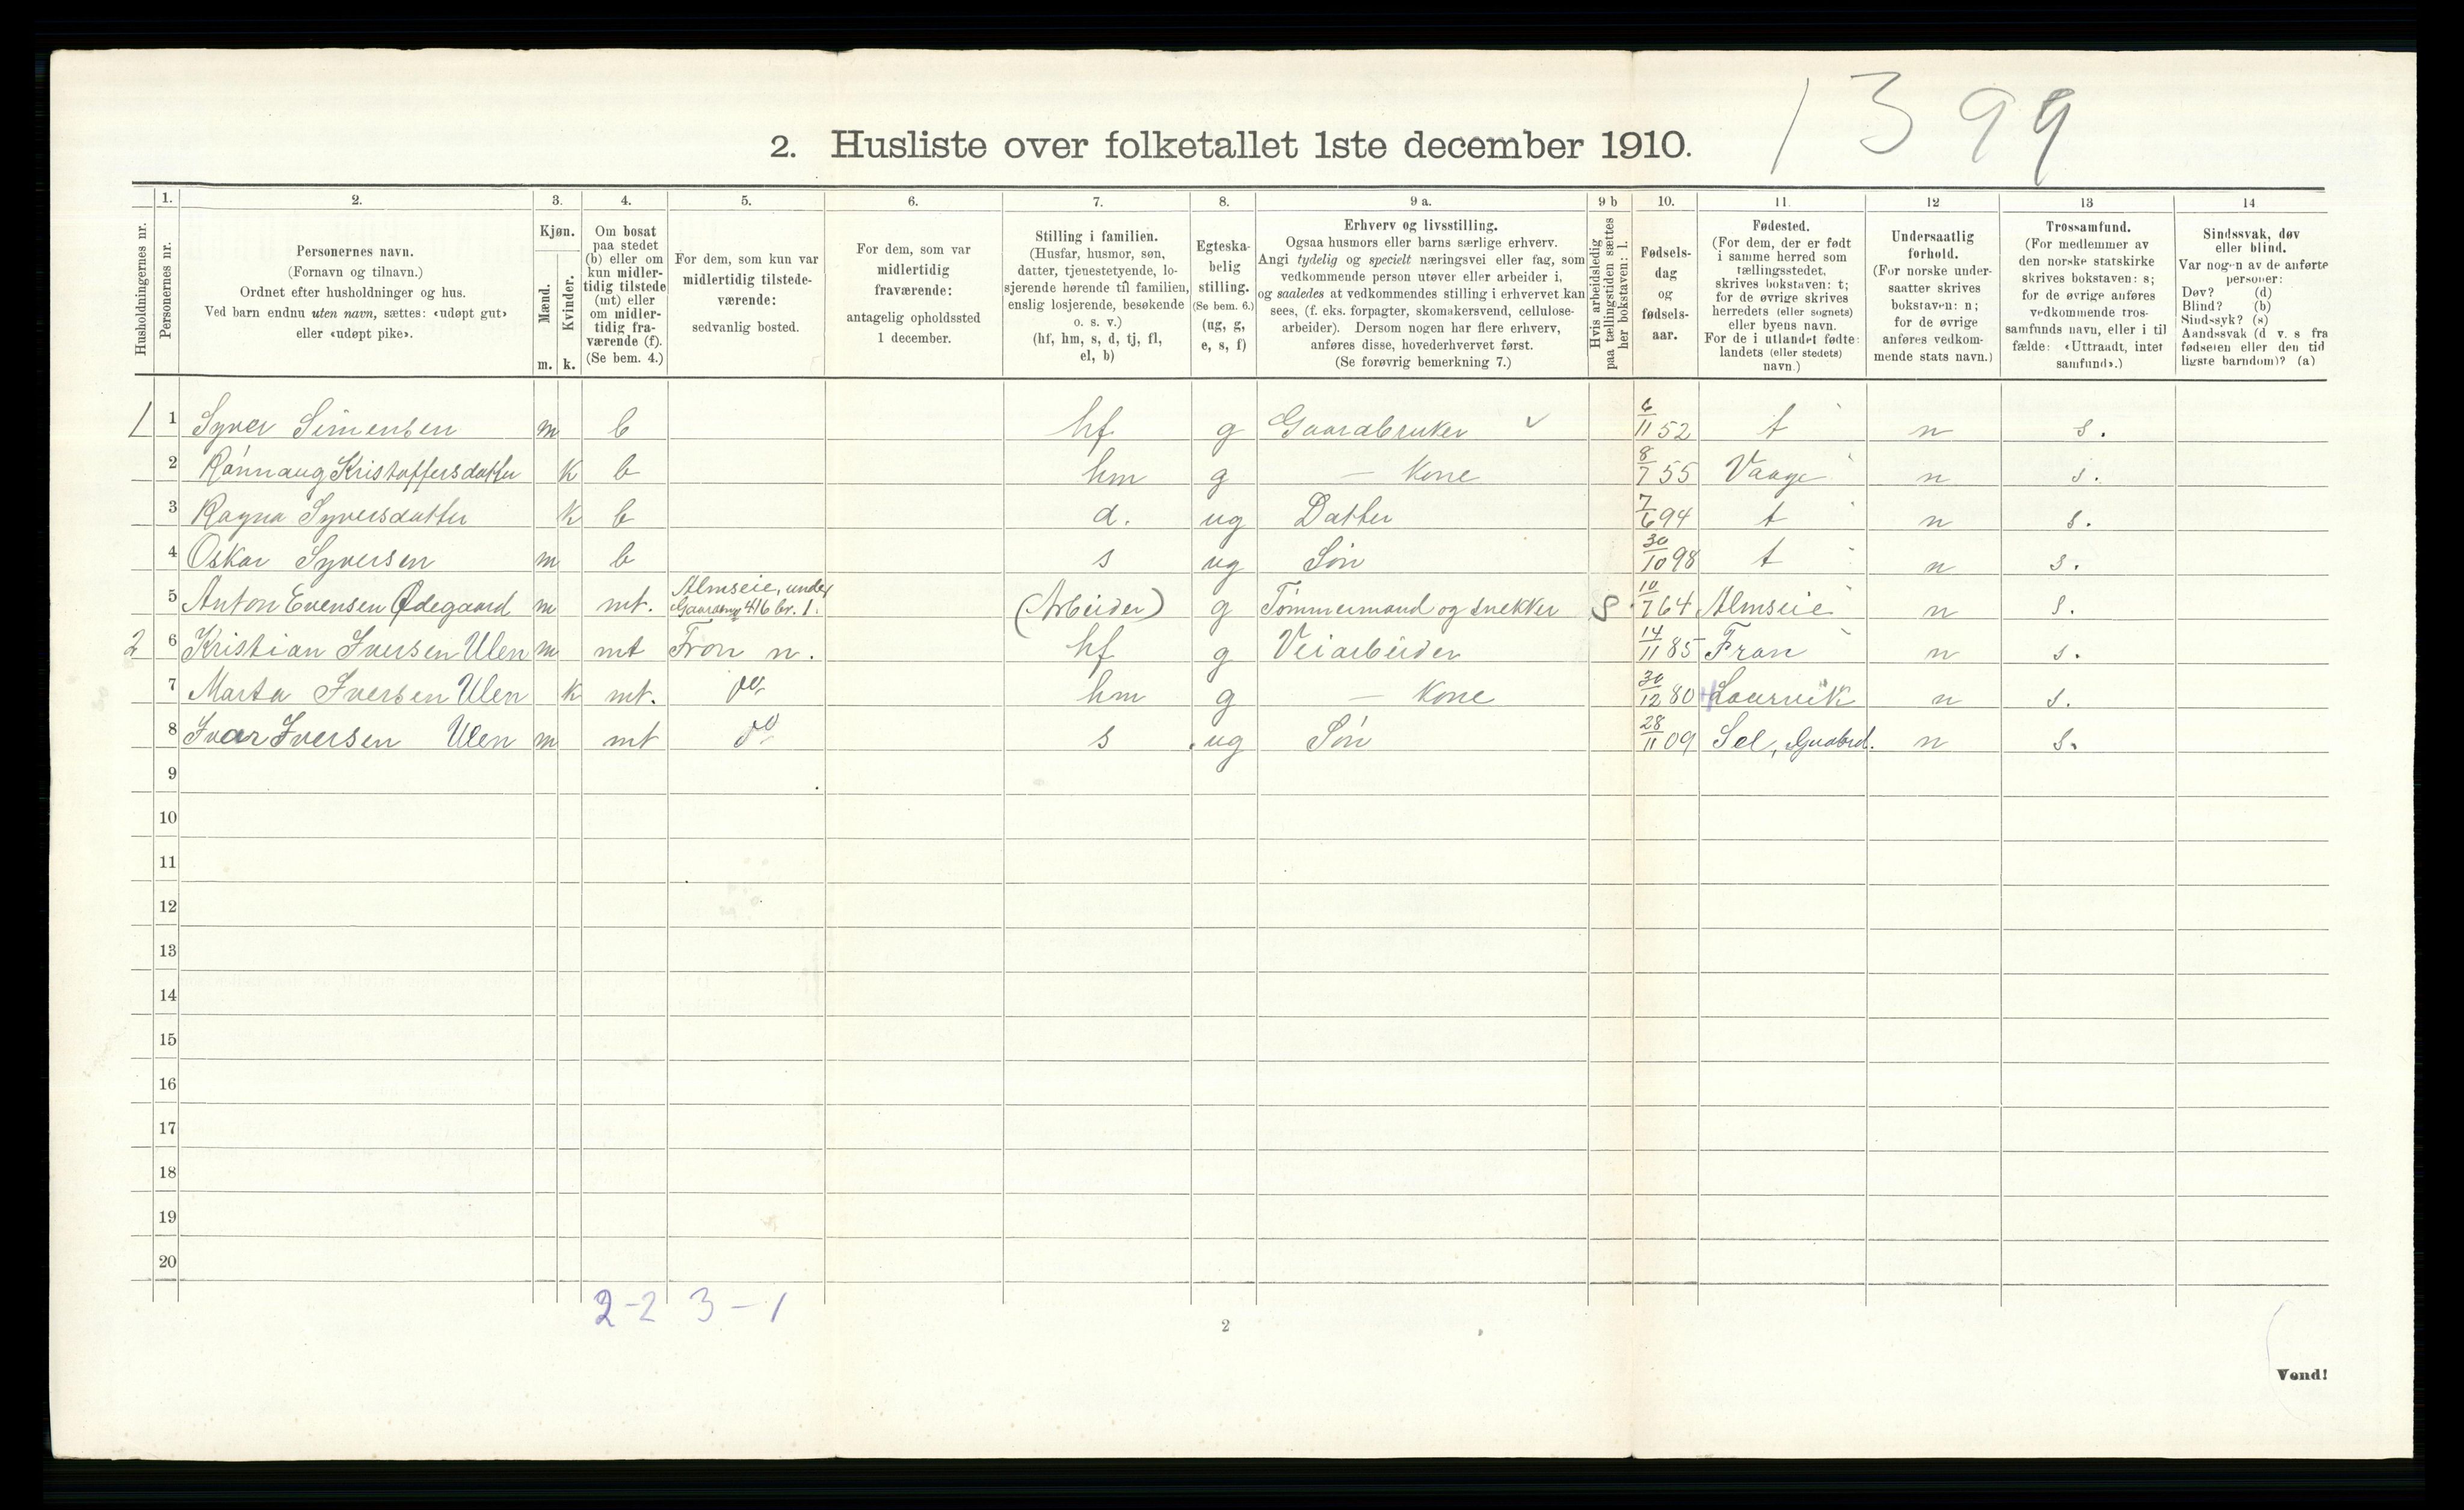 1399
2. Husliste over folketallet 1ste december 1910.
Husholdningernes nr.
1. Personernes nr.
2. Personernes navn. (Fornavn og tilnavn.) Ordnet efter husholdninger og hus. Ved barn endnu uten navn, sættes: «udøpt gut» eller «udøpt pike».
3. Kjøn. Mænd. m. Kvinder. k.
4. Om bosat paa stedet (b) eller om kun midlertidig tilstede (mt) eller om midlertidig fraværende (f). (Se bem. 4.)
5. For dem, som kun var midlertidig tilstedeværende: sedvanlig bosted.
6. For dem, som var midlertidig fraværende: antagelig opholdssted 1 december.
7. Stilling i familien. (Husfar, husmor, søn, datter, tjenestetyende, losjerende hørende til familien, enslig losjerende, besøkende o. s. v.) (hf, hm, s, d, tj, fl, el, b)
8. Egteskabelig stilling. (Se bem. 6.) (ug, g, e, s, f)
9 a. Erhverv og livsstilling. Ogsaa husmors eller barns særlige erhverv. Angi tydelig og specielt næringsvei eller fag, som vedkommende person utøver eller arbeider i, og saaledes at vedkommendes stilling i erhvervet kan sees, (f. eks. forpagter, skomakersvend, cellulosearbeider). Dersom nogen har flere erhverv, anføres disse, hovederhvervet først. (Se forøvrig bemerkning 7.)
9 b Hvis arbeidsledig paa tællingstiden sættes her bokstaven: l.
10. Fødselsdag og fødselsaar.
11. Fødested. (For dem, der er født i samme herred som tællingsstedet, skrives bokstaven: t; for de øvrige skrives herredets (eller sognets) eller byens navn. For de i utlandet fødte: landets (eller stedets) navn.)
12 Undersaatlig forhold. (For norske undersaatter skrives bokstaven: n; for de øvrige anføres vedkommende stats navn.)
13 Trossamfund. (For medlemmer av den norske statskirke skrives bokstaven: s; for de øvrige anføres vedkommende trossamfunds navn, eller i tilfælde: «Uttraadt, intet samfund».)
14 Sindssvak, døv eller blind. Var nogen av de anførte personer: Døv? (d) Blind? (b) Sindssyk? (s) Aandssvak (d v. s fra fødselen eller den tidligste barndom)? (a)
1 1 Syver Simensen m b hf g Gaardbruker 6/11 52 t n s.
2 Rønnaug Kristoffersdatter k b hm g — Kone 8/7 55 Vaage n s.
3 Ragna Syversdatter k b d. ug Datter 7/6 94 t n s.
4 Oskar Syversen m b s ug Søn 30/10 98 t n s.
5 Anton Evensen Ødegaard m mt. Almseie, under Gaardsnr 416 br. 1. (Arbeider) g Tømmermand og snekker S 10/7 64 Almseie n s.
2 6 Kristian Iversen Ulen m mt Fron n. hf g Veiarbeider 14/11 85 Fron n s.
7 Marta Iversen Ulen k mt. do hm g — Kone 30/12 80 Laurvik n s.
8 Ivar Iversen Ulen m mt do s ug Søn 28/11 09 Sel, Gudbrd. n s.
9
10
11
12
13
14
15
16
17
18
19
20
2-2 3-1
2
Vend!